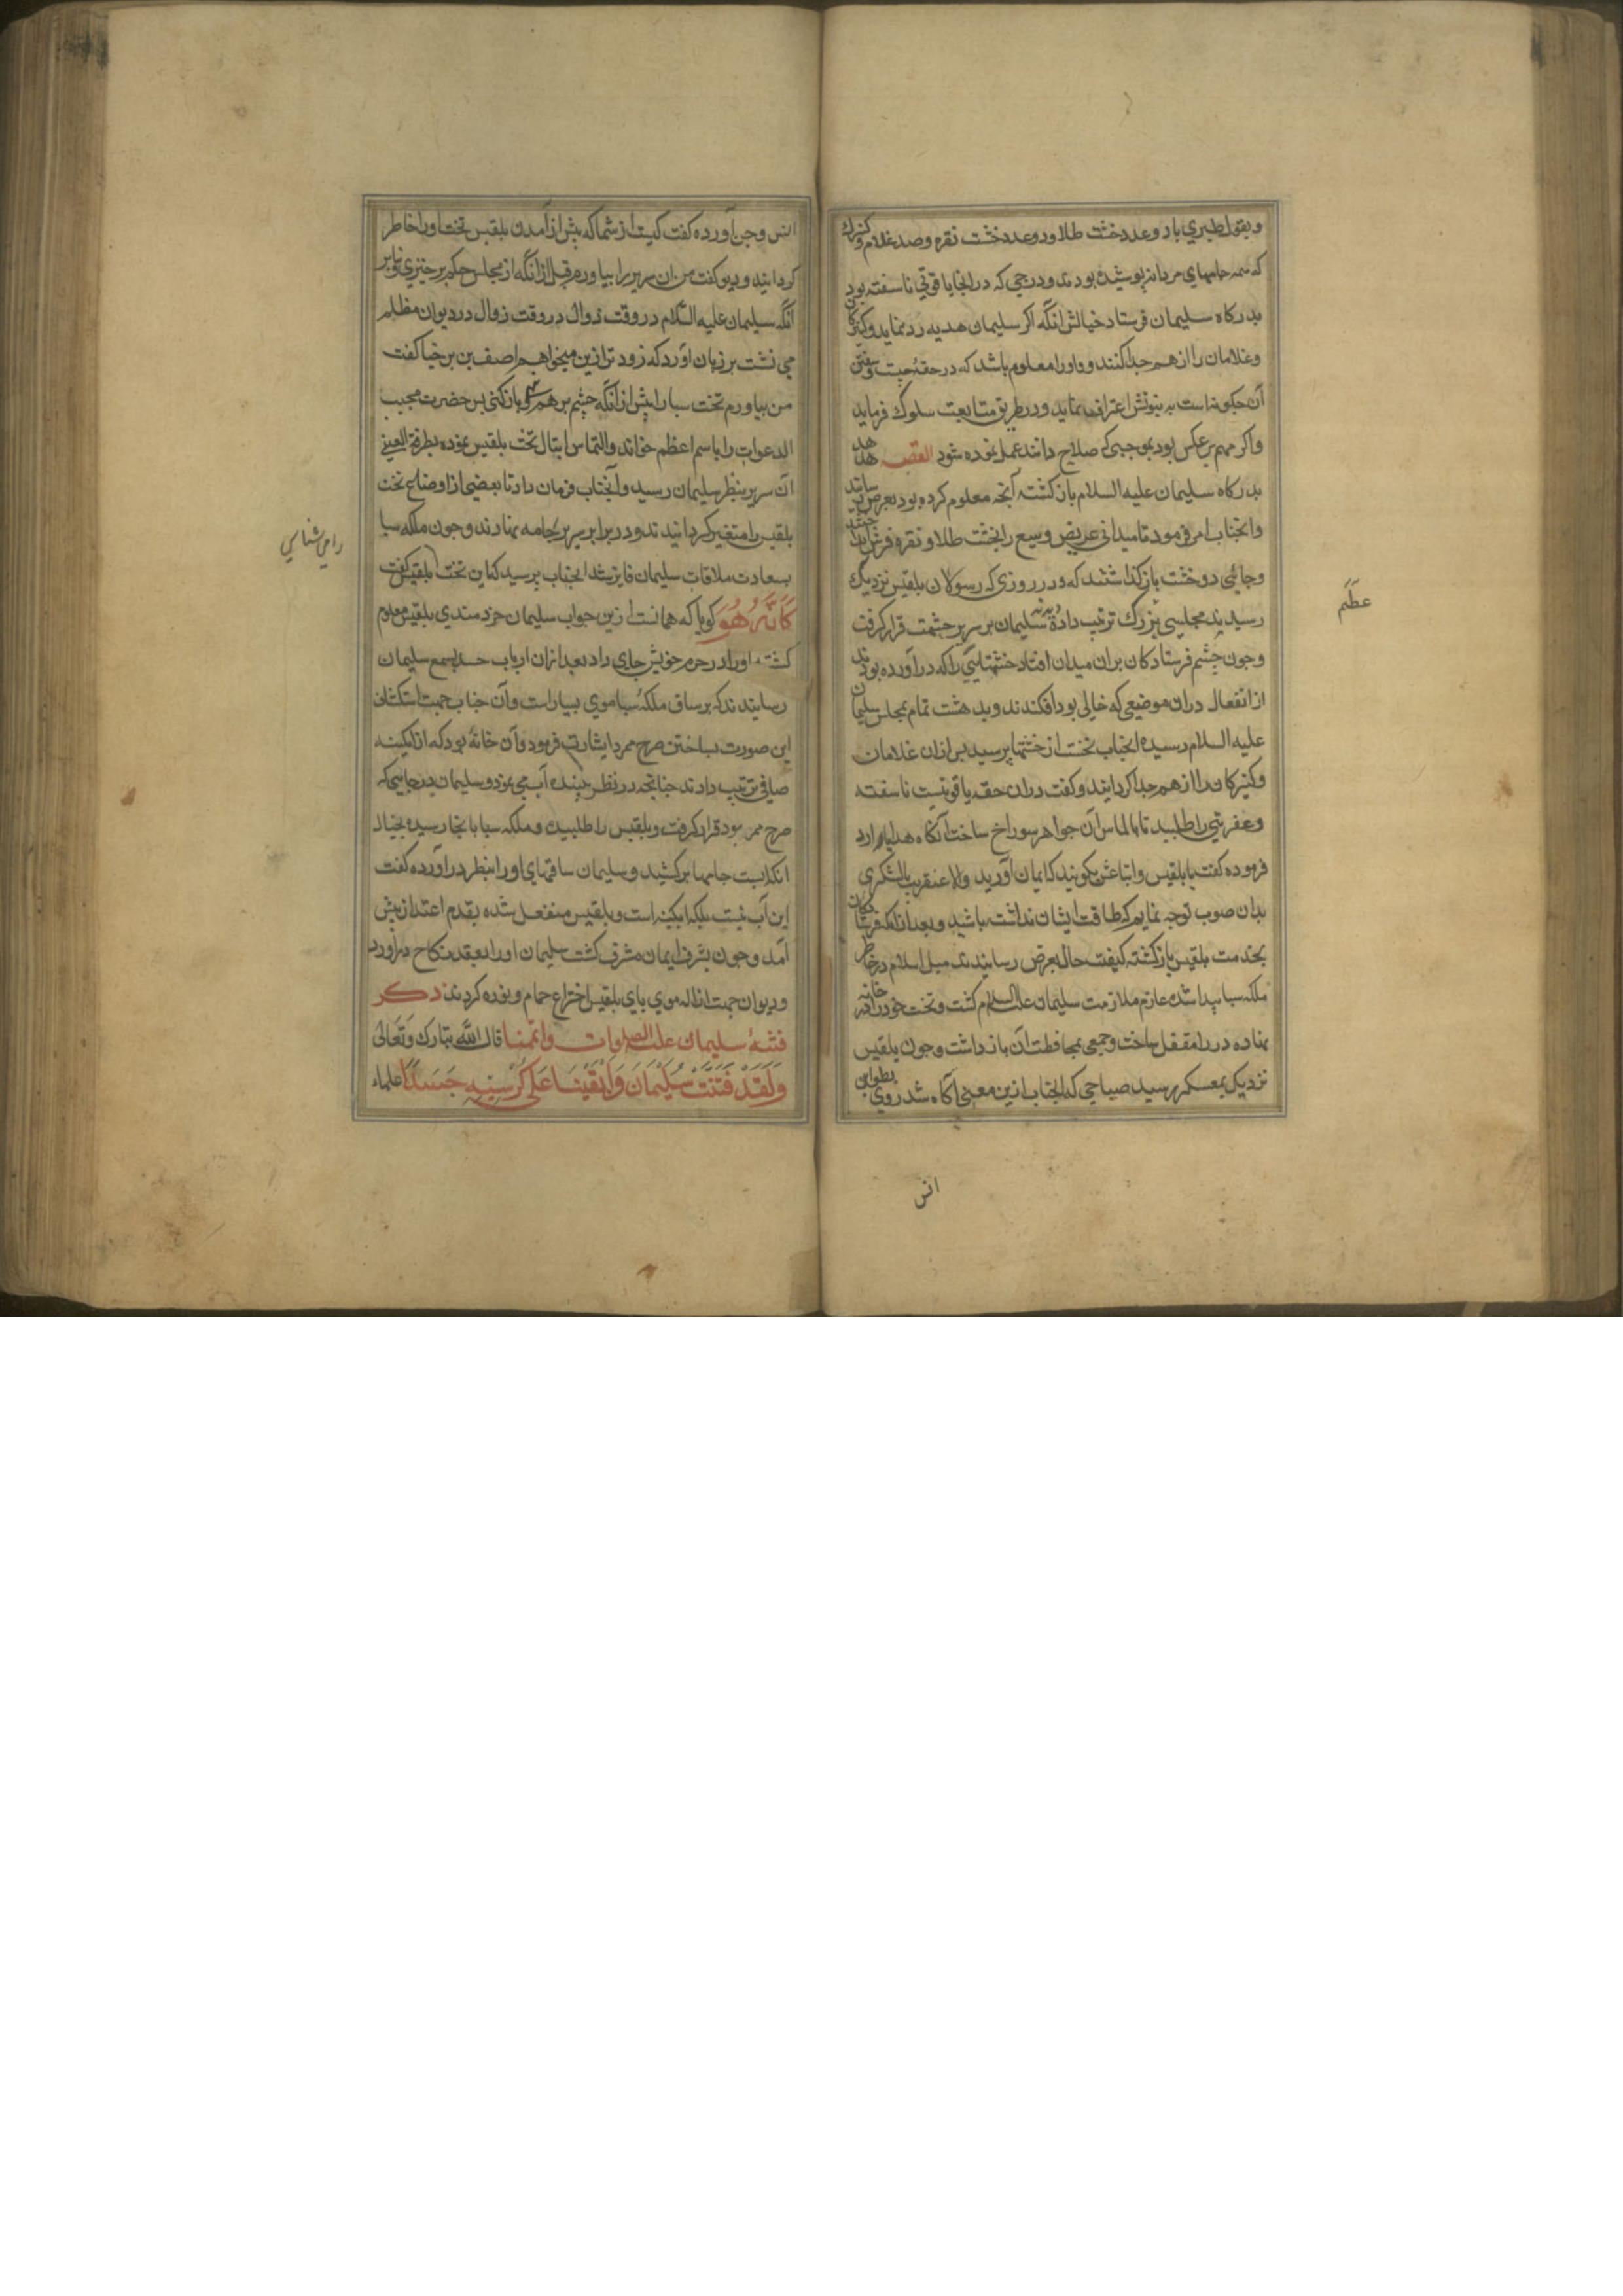 وبقول طبري باد وعدد خشت طلا ودو عدد خشت نقره وصد غلام وكنيزك
كه همه جامهاي مردانه پوشيده بودند ودرجي كه در انجا ياقوتي ناسفته بود
بدركاه سليمان فرستاد خيالش انكه اكر سليمان هديه رد نمايد وكنيزكان
وغلامان را از هم جدا كنند و اورا معلوم باشد كه در حقه چيست وسفتن
آن چكونه است به نبوتش اعتراف نمايد ودر طريق متابعت سلوك فرمايد
واكر مهم بر عكس بود بموجبي كه صلاح دانند عمل نموده شود القصه هدهد
بدركاه سليمان عليه السلام باز كشته آنچه معلوم كرده بود بعرض رسانيد
وانجناب امر فرمود تا ميداني عريض وسيع را بخشت طلا ونقره فرش
وجائي دو خشت باز كذاشتند كه ودر روزي كه رسولان بلقيس نزديك
رسيدند مجلسي بزرك ترتيب داده سليمان بر سرير حشمت قرار كرفت
وچون چشم فرستادكان بران ميدان افتاد خشتهايي را كه در آورده بودند
از انفعال دران موضعي كه خالي بود افكندند وبدهشت تمام بمجلس سليمان
عليه السلام رسيده انجناب نخست از خشتها پرسيد پس ازان غلامان
وكنيزكان را از هم جدا كردانيد وكفت دران حقه ياقوتيست ناسفته
وعفريتي را طلبيد تا بالماس آن جواهر سوراخ ساخت آنكاه هدايا را رد
فرموده كفت با بلقيس واتباعش بكوئيد كه ايمان آوريد والا عنقريب بالشكري
بدان صوب توجه نمايم كه طاقت ايشان نداشته باشيد وبعد از انكه فرستادكان
بخدمت بلقيس باز كشته كيفيت حال بعرض رسانيدند ميل اسلام در خاطر
ملكه سبا پيدا شده عازم ملازمت سليمان عليه السلام كشت وتخت خود را در خانه
نهاده در را مقفل ساخت وجمعي بمحافظت آن باز داشت وچون بلقيس
نزديك بمعسكر رسيد صباحي كه انجناب ازين معني آكاه شد روي بطوايف
عظم
انس
انس وجن آورده كفت كيست از شما كه پيش از آمدن بلقيس تخت او را حاضر
كردانيد وديو كفت من ان سرير را بياورم قبل از انكه از مجلس حكم بر خيزي وبنابر
آنكه سليمان عليه السلام در وقت زوال در وقت زوال در ديوان مظالم
مي نشست بر زبان آورد كه زود تر ازين ميخواهم اصف بن برخيا كفت
من بياورم تخت سبا را پيش از انكه چشم برهم نهي وباز كني پس حضرت مجيب
الدعوات را باسم اعظم خواند والتماس ايتال تخت بلقيس نموده بطرفة العيني
ان سرير بنظر سليمان رسيد وآنجناب فرمان داد تا بعضي از اوضاع تخت
بلقيس را متغير كردانيدند ودر برابر سرير نهادند وچون ملكه سبا
بسعادت ملاقات سليمان فايز شد انجناب پرسيد كه اين تخت بلقيس كفت
كَاَنَّهُ هُوَ كويا كه همانست ازين جواب سليمان خردمندي بلقيس معلوم
كشته اورا در حرم خويش جاي داد بعد ازان ارباب حسد بسمع سليمان
رسانيدند كه بر ساق ملكه سبا موي بسيار است وآن جناب جهت استكشاف
اين صورت بساختن صرح ممرد اشارت فرمود وآن خانهٔ بود كه از ابكينه
صافي ترتيب دادند چنانچه در نظر بيننده آب مي نمود وسليمان در جاييكه
صرح ممرد بود قرار كرفت وبلقيس را طلبيد وملكه سبا بانجا رسيده بخيال
انكه ابست جامها بر كشيد وسليمان ساقهاي اورا بنظر در آورده كفت
اين آب نيست بلكه ابكينه است وبلقيس منفعل شده بقدم اعتذار پيش
آمد وچون بشرف ايمان مشرف كشت سليمان اورا بعقد نكاح در آورد
وديوان جهت ازاله موي پاي بلقيس اختراع حمام ونوره كردند ذكر
فتنهٔ سليمان عليه الصلوات قال الله تبارك وتعالى
وَلَقَدْ فَتَنَّتْ سُلَيْمَانَ وَاَلْقَيْنَا عَلى كُرْسِيِّهِ جَسَدًا علماء